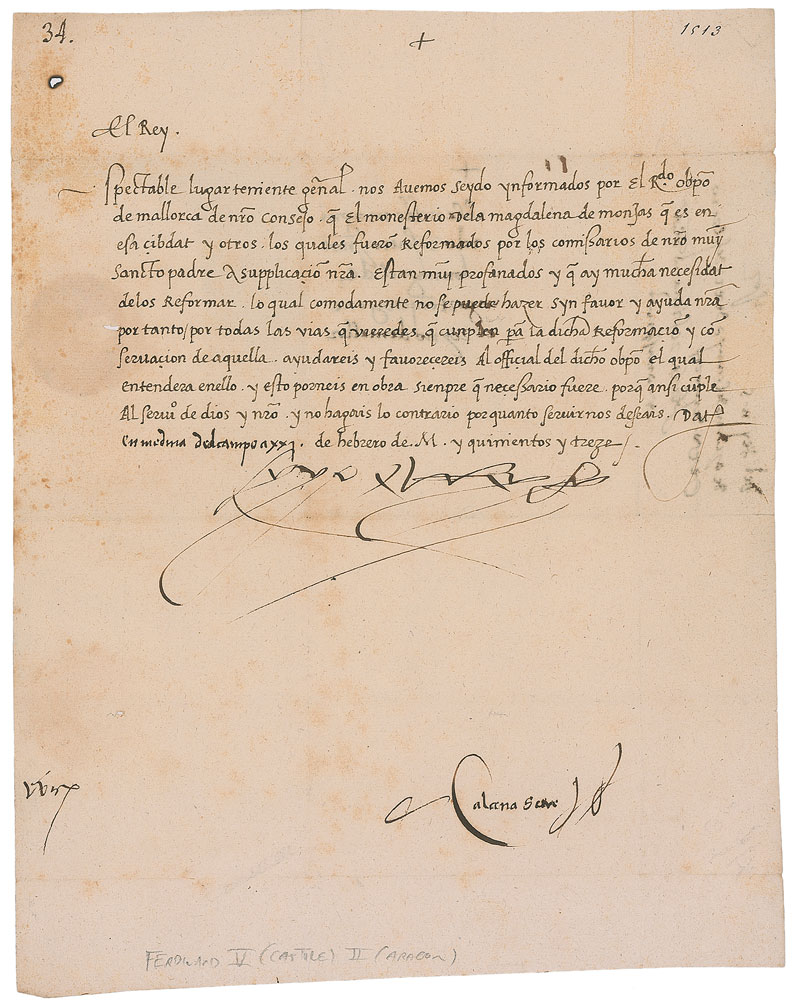 34.
+
1513
El Rey.
Spectable lugarteniente gñal. nos Avemos seydo ynformados por El R.do obpõ
de mallorca de nrõ Consejo. q̃ El monesterio dela magdalena de monjas q̃ es en
esa çibdat y otros. los quales fuerõ Reformados por los comissarios de nrõ muy
Sancto padre A supplicaciõ nrã. Estan muy profanados y q̃ ay mucha necesidat
delos Reformar. lo qual comodamente no se puede hazer syn favor y ayuda nrã
por tanto / por todas las vias q̃ vieredes q̃ cunplen pã la dicha Reformaciõ y cõ
servaçion de aquella. ayudareis y favoreçereis Al official del dicho obpõ el qual
entendera enello. y esto porneis en obra sienpre q̃ necessario fuere. porq̃ ansi cunple
Al servi.o de dios y nrõ. y no hagais lo contrario por quanto servirnos deseais. Dat
En medina del campo a xxj. de hebrero de M. y quinientos y treze.
yo el Rey
Calcena Secre
FERDINAND IV (CASTILE) II (ARAGON)